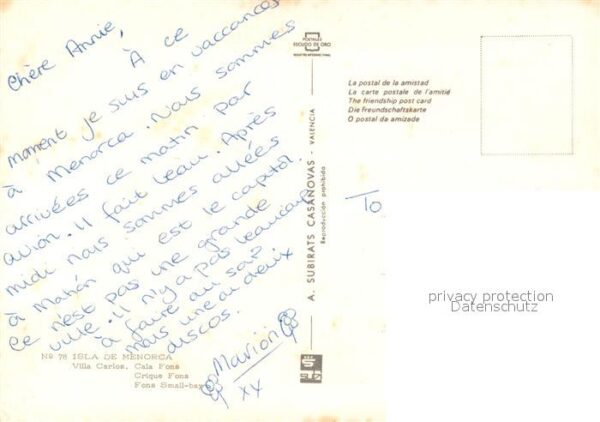 Chère Annie,
À ce
moment je suis en vaccances
à Menorca. Nous sommes
arrivées ce matin par
avion. Il fait beau. Après
midi nous sommes allées
à Mahón qui est le capitol.
Ce n'est pas une grande
ville. Il n'y a pas beaucoup
à faire au soir
mais une au deux
discos.
Marion
xx
Nº 78 ISLA DE MENORCA
Villa Carlos, Cala Fons
Crique Fons
Fons Small-bay
POSTALES
ESCUDO DE ORO
A. SUBIRATS CASANOVAS - VALENCIA
Reproducción prohibida
La postal de la amistad
La carte postale de l'amitié
The friendship post card
Die Freundschaftskarte
O postal da amizade
To
privacy protection
Datenschutz